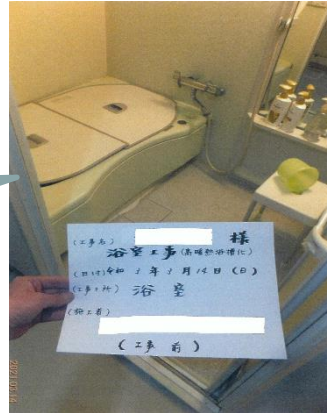 (工事名) 様
浴室工事 (高断熱浴槽化)
(日付) 令和 3年 3月 14日 (日)
(工事ヶ所) 浴室
(施工者)
(工事 前)
2021/03/14